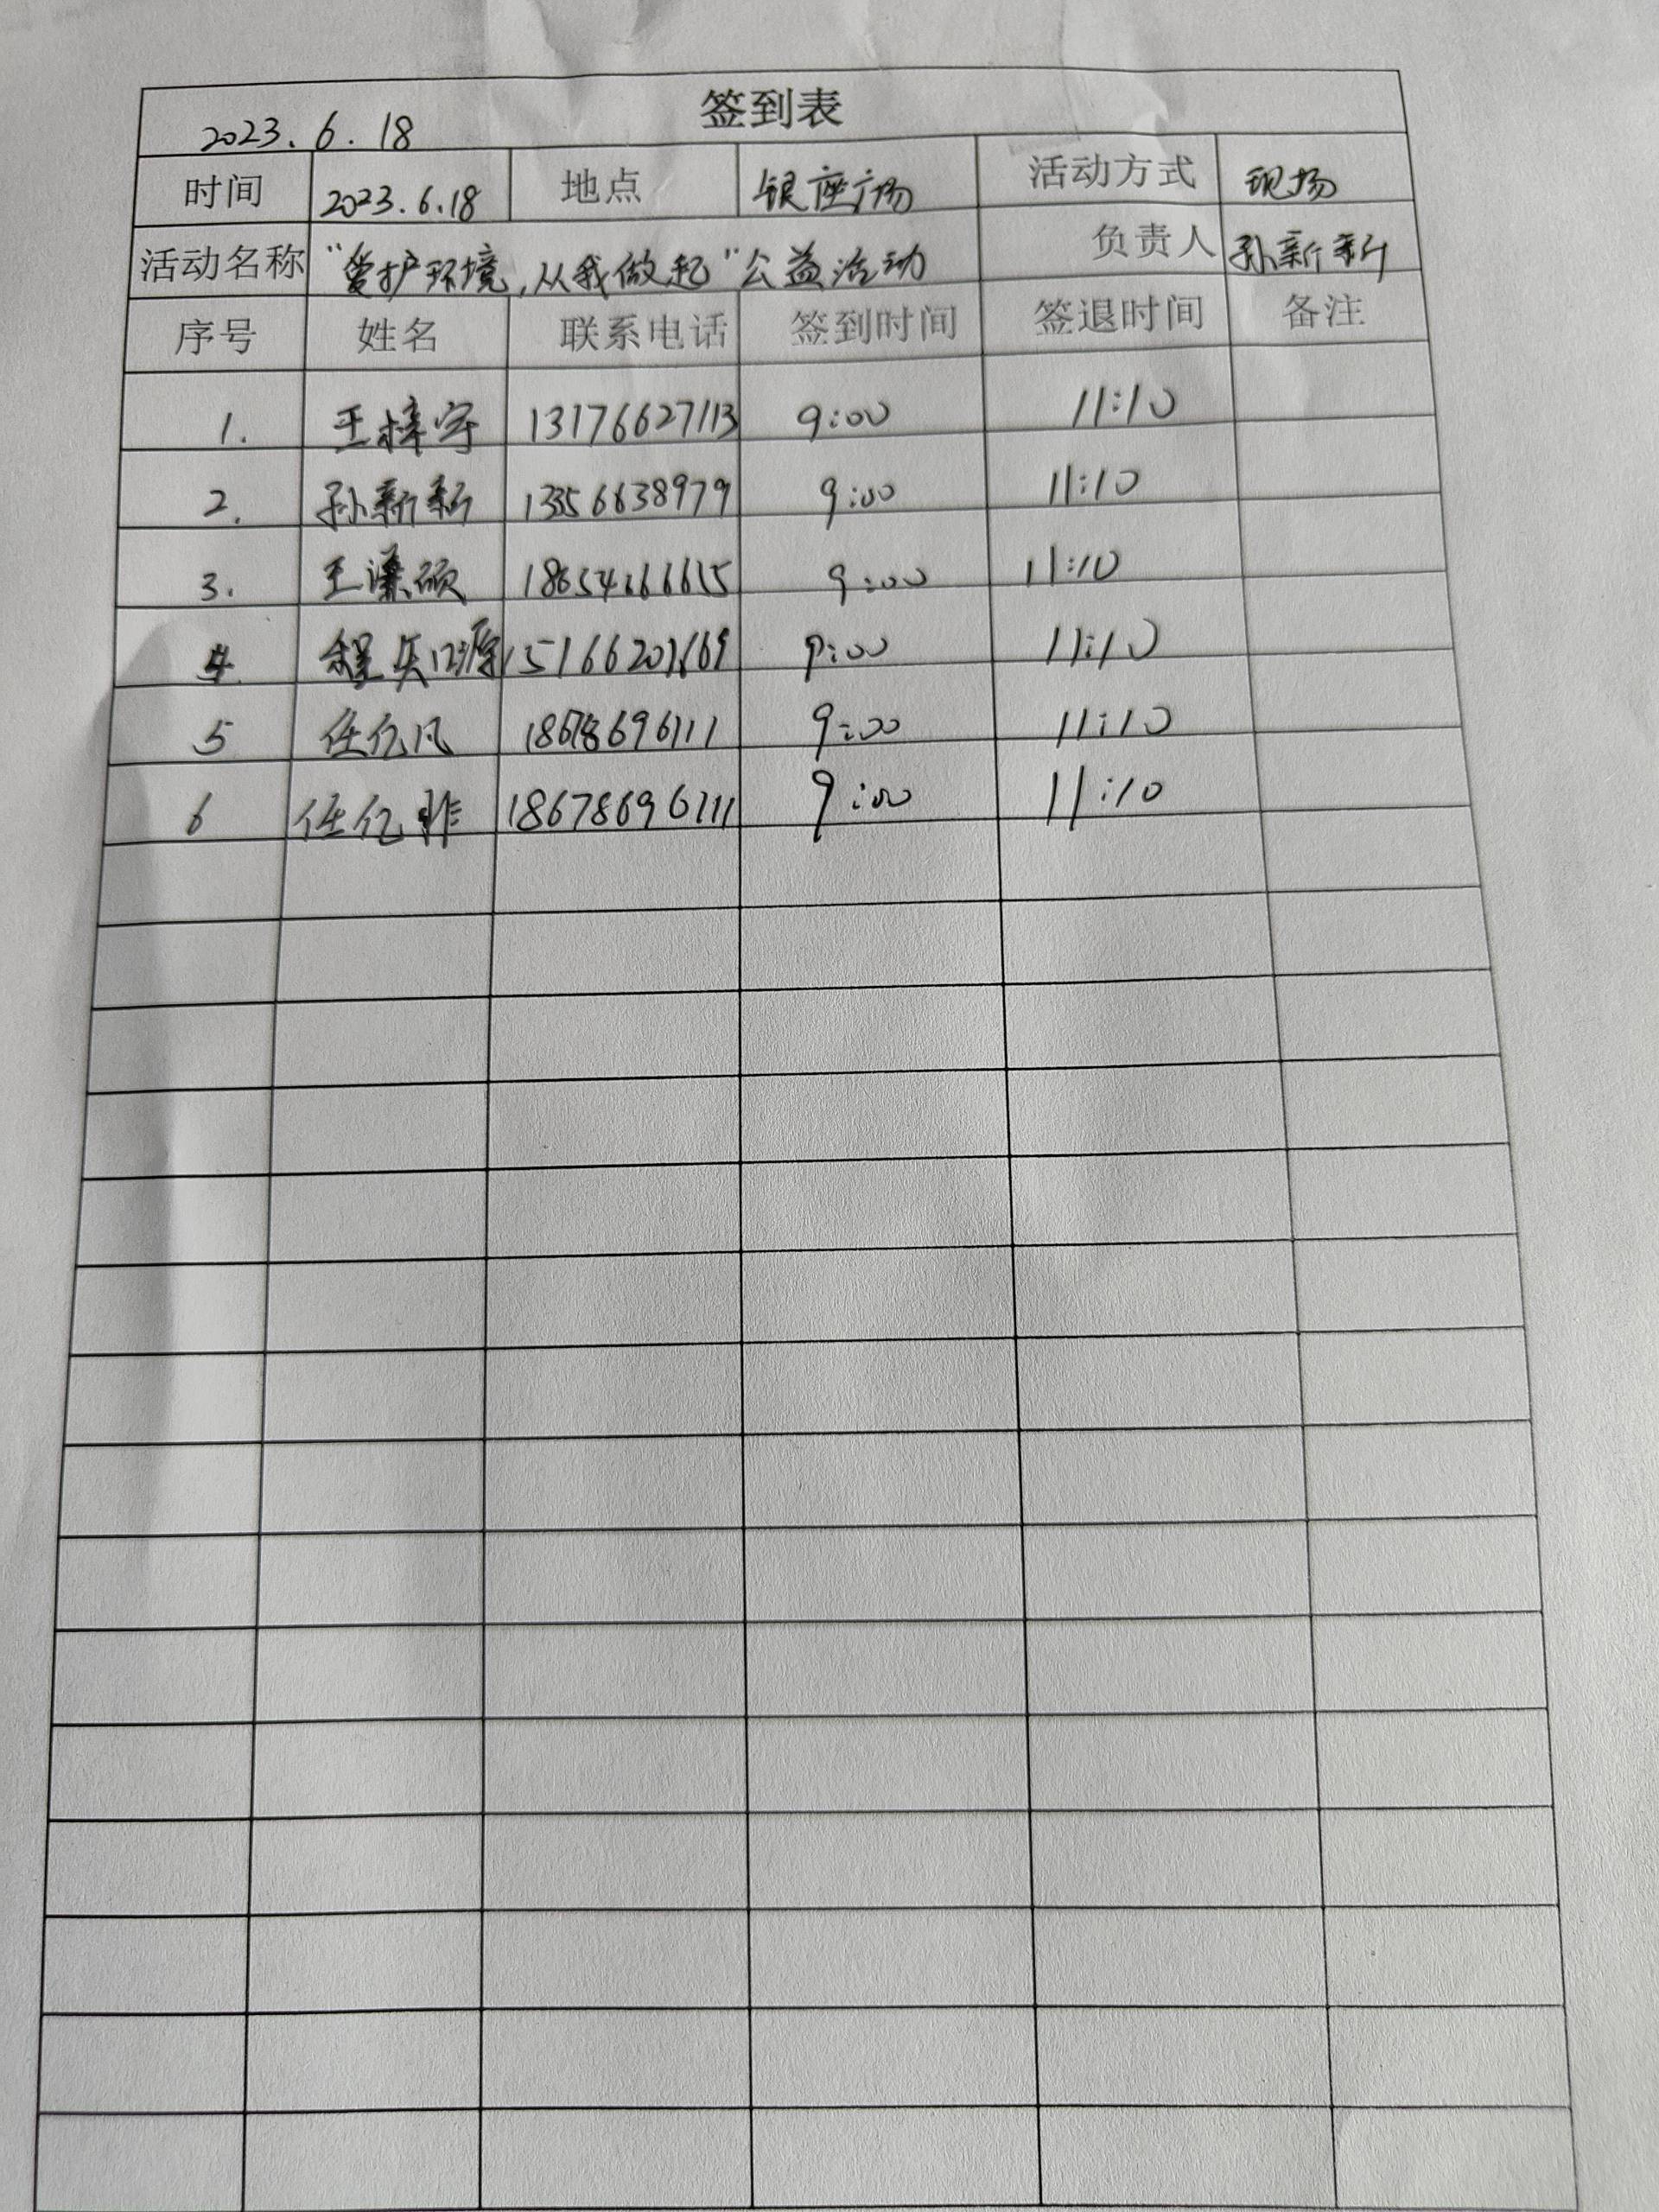 签到表
2023.6.18
时间 2023.6.18 地点 银座广场 活动方式 现场
活动名称 “爱护环境,从我做起”公益活动 负责人 孙新新
序号 姓名 联系电话 签到时间 签退时间 备注
1. 王梓宇 13176627113 9:00 11:10
2. 孙新新 13356638979 9:00 11:10
3. 王濠硕 18654666615 9:00 11:10
4. 程奕源 9:00 11:10
5 任亿凡 18678696111 9:00 11:10
6 任亿非 18678696111 9:00 11:10